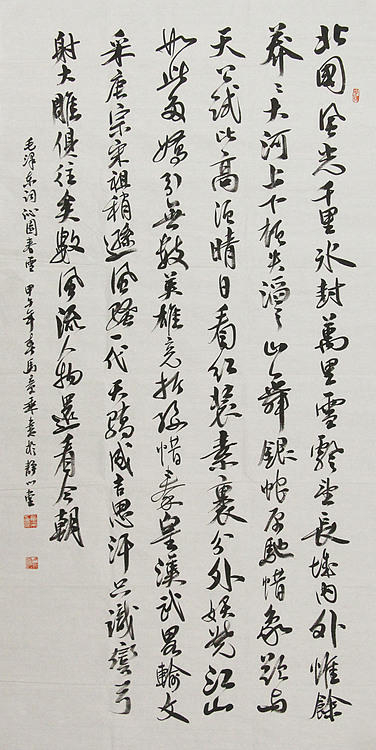 北國風光千里冰封萬里雪飄望長城內外惟餘
莽々大河上下頓失滔々山舞銀蛇原馳蜡象欲与
天公試比高須晴日看红裝素裹分外妖娆江山
如此多嬌引無數英雄競折腰惜秦皇漢武略輸文
采唐宗宋祖稍遜風騷一代天驕成吉思汗只識彎弓
射大雕俱往矣數風流人物還看今朝
毛澤東詞沁園春雪 甲午年春馬書於靜心堂